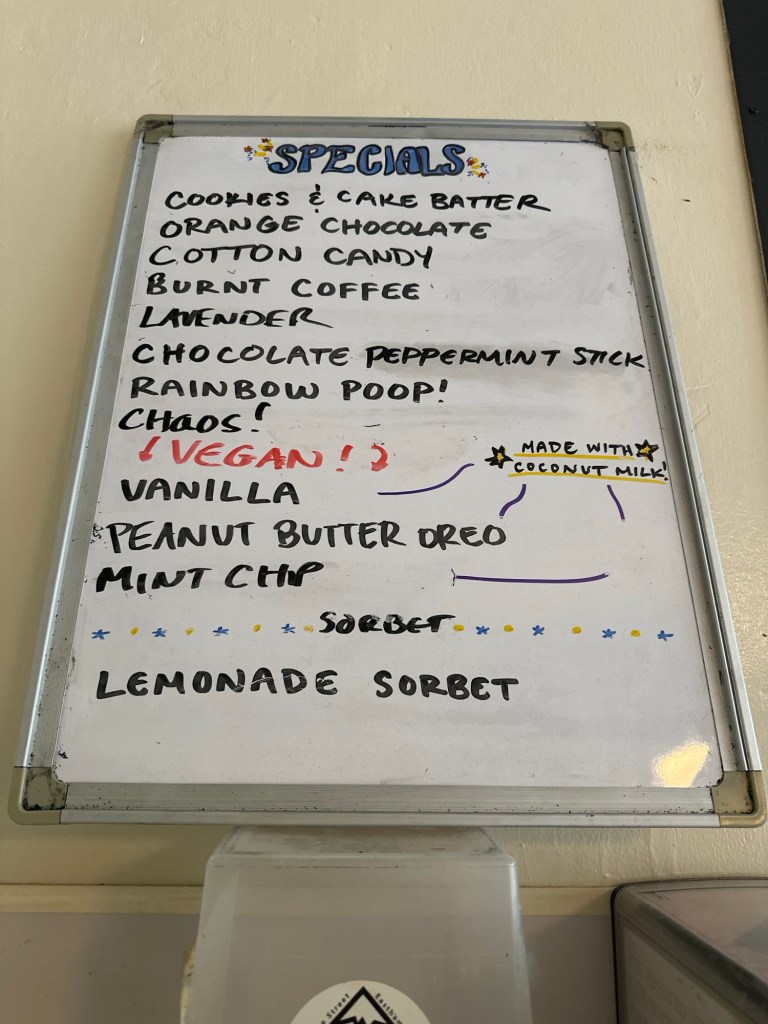 SPECIALS
COOKIES & CAKE BATTER
ORANGE CHOCOLATE
COTTON CANDY
BURNT COFFEE
LAVENDER
CHOCOLATE PEPPERMINT STICK
RAINBOW POOP!
CHAOS!
VEGAN!
MADE WITH
COCONUT MILK!
VANILLA
PEANUT BUTTER OREO
MINT CHIP
SORBET
LEMONADE SORBET
Street